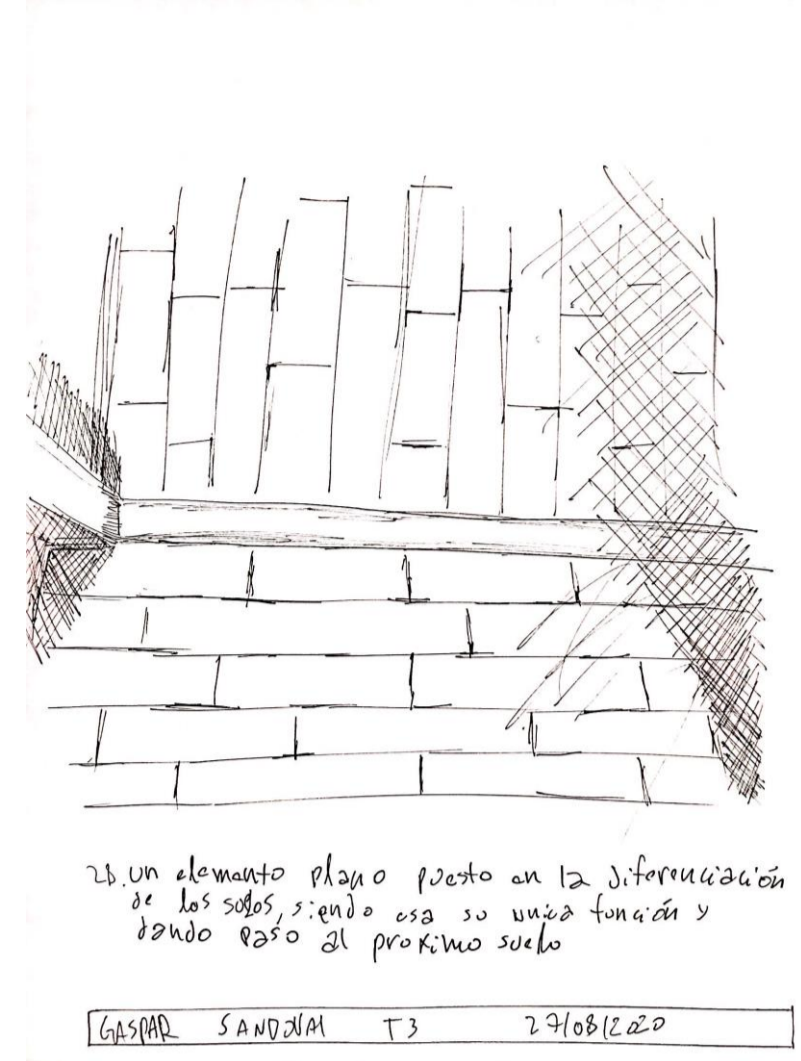 2b. un elemento plano puesto en la diferenciación
de los sue̶los, siendo esa su unica función y
dando paso al proximo suelo
GASPAR SANDOVAL T3 27/08/2020